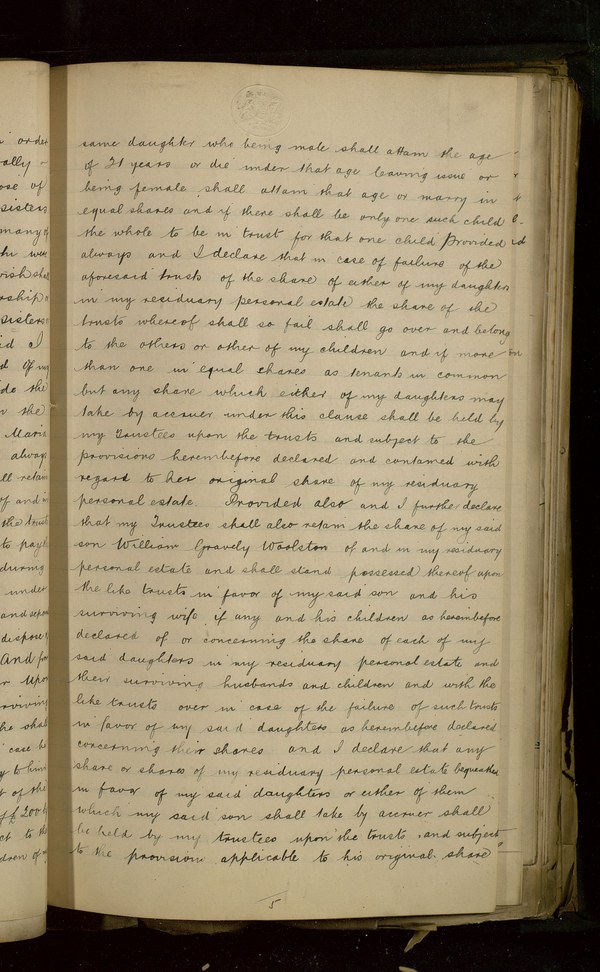 same daughter who being male shall attain the age
of 21 years or die under that age leaving issue or
being female shall attain that age or marry in
equal shares and if there shall be only one such child
the whole to be in trust for that one child Provided
always and I declare that in case of failure of the
aforesaid trusts of the share of either of my daughters
in my residuary personal estate the share of the
trusts whereof shall so fail shall go over and belong
to the others or other of my children and if more
than one in equal shares as tenants in common
but any share which either of my daughters may
take by accruer under this clause shall be held by
my Trustees upon the trusts and subject to the
provisions hereinbefore declared and contained with
regard to her original share of my residuary
personal estate. Provided also and I further declare
that my Trustees shall also retain the share of my said
son William Gravely Woolston of and in my residuary
personal estate and shall stand possessed thereof upon
the like trusts in favor of my said son and his
surviving wife if any and his children as hereinbefore
declared of or concerning the share of each of my
said daughters in my residuary personal estate and
their surviving husbands and children and with the
like trusts over in case of the failure of such trusts
in favor of my said daughters as hereinbefore declared
concerning their shares and I declare that any
share or shares of my residuary personal estate bequeathed
in favor of my said daughters or either of them
which my said son shall take by accruer shall
be held by my trustees upon the trusts and subject
to the provisions applicable to his original share
5